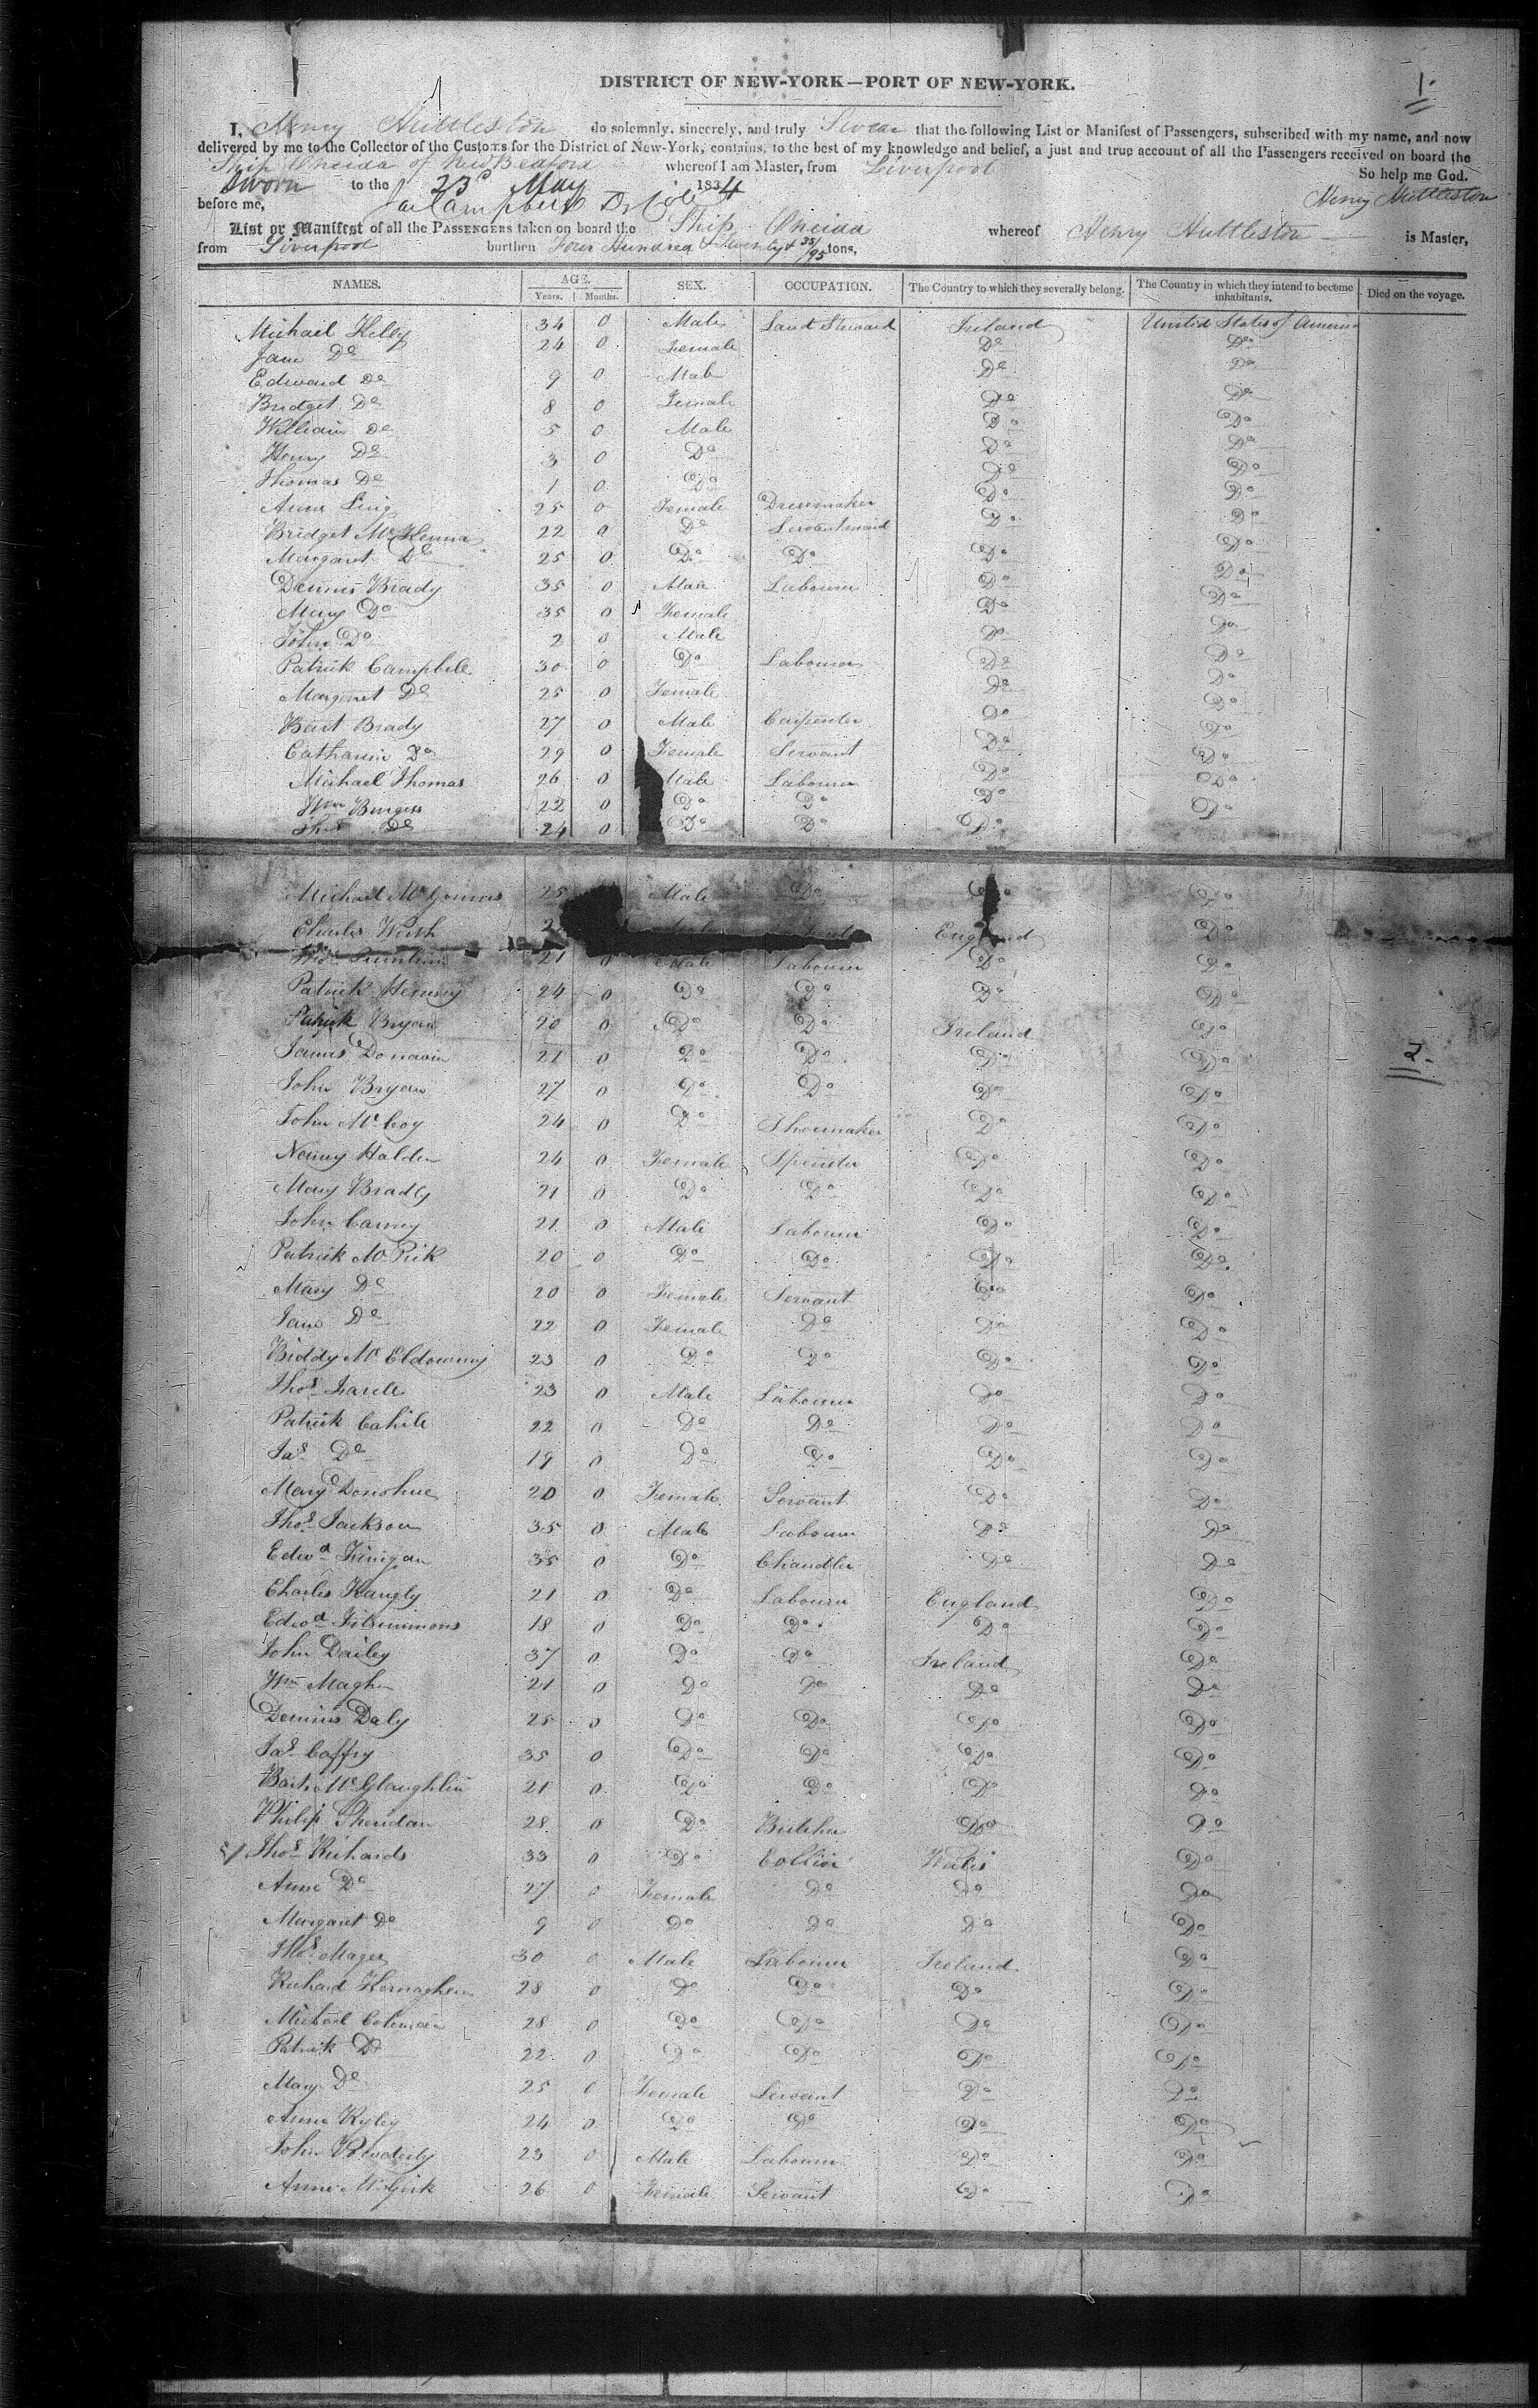 1.
DISTRICT OF NEW-YORK—PORT OF NEW-YORK.
I, Henry Huttleston do solemnly, sincerely, and truly Swear that the following List or Manifest of Passengers, subscribed with my name, and now
delivered by me to the Collector of the Customs for the District of New-York, contains, to the best of my knowledge and belief, a just and true account of all the Passengers received on board the
Ship Oneida of New Bedford whereof I am Master, from Liverpool So help me God.
Sworn to the 23d May 1834 Henry Huttleston
before me, Campbell
List or Manifest of all the PASSENGERS taken on board the Ship Oneida whereof Henry Huttleston is Master,
from Liverpool burthen Four Hundred & Twenty & 35/95 tons,
NAMES. AGE. SEX. OCCUPATION. The Country to which they severally belong. The Country in which they intend to become inhabitants. Died on the voyage.
Years. Months.
Michael 34 0 Male Land Steward Ireland United States of America
Jane Do 24 0 Female Do Do
Edward Do 9 0 Male Do Do
Bridget Do 8 0 Female Do Do
William Do 5 0 Male Do Do
Henry Do 3 0 Do Do Do
Thomas Do 1 0 Do Do Do
Anne King 25 0 Female Dressmaker Do Do
Bridget McKenna 22 0 Do Servant maid Do Do
Margaret Do 25 0 Do Do Do Do
Dennis Brady 35 0 Male Labourer Do Do
Mary Do 35 0 Female Do Do
John Do 2 0 Male Do Do
Patrick Campbell 30 0 Do Labourer Do Do
Margaret Do 25 0 Female Do Do
Brady 27 0 Male Carpenter Do Do
Catharine Do 29 0 Female Servant Do Do
Michael Thomas 26 0 Male Labourer Do Do
Wm Burgess 22 0 Do Do Do Do
Thos Do 24 0 Do Do Do
Michael 25 Male Do Do Do
Charles England Do
21 0 Male Labourer Do Do
Patrick 24 0 Do Do Do Do
Patrick Bryan 20 0 Do Do Ireland Do
James Donavin 21 0 Do Do Do Do
2.
John Bryan 27 0 Do Do Do Do
John McCoy 24 0 Do Shoemaker Do Do
Halden 24 0 Female Spinster Do Do
Mary Bradly 21 0 Do Do Do Do
John Carney 21 0 Male Labourer Do Do
Patrick 20 0 Do Do Do Do
Mary Do 20 0 Female Servant Do Do
Jane Do 22 0 Female Do Do Do
Biddy McEldowney 23 0 Do Do Do Do
Thos 23 0 Male Labourer Do Do
Patrick Cahill 22 0 Do Do Do Do
Jas Do 19 0 Do Do Do Do
Mary Donohue 20 0 Female Servant Do Do
Thos Jackson 35 0 Male Labourer Do Do
Edwd Finigan 35 0 Do Chandler Do Do
Charles 21 0 Do Labourer England Do
Edwd Fitzsimmons 18 0 Do Do Do Do
John Dailey 37 0 Do Do Ireland Do
Wm Magher 21 0 Do Do Do Do
Dennis Daly 25 0 Do Do Do Do
Jas Caffry 35 0 Do Do Do Do
McGlaughlin 21 0 Do Do Do Do
Philip Sheridan 28 0 Do Butcher Do Do
Thos Richards 33 0 Do Collier Wales Do
Anne Do 27 0 Female Do Do Do
Margaret Do 9 0 Do Do Do Do
Thos Mager 30 0 Male Labourer Ireland Do
Richard Kernaghan 28 0 Do Do Do Do
Michael Coleman 28 0 Do Do Do Do
Patrick Do 22 0 Do Do Do Do
Mary Do 25 0 Female Servant Do Do
Anne Ryley 24 0 Do Do Do Do
John 23 0 Male Labourer Do Do
Anne McGirk 26 0 Female Servant Do Do